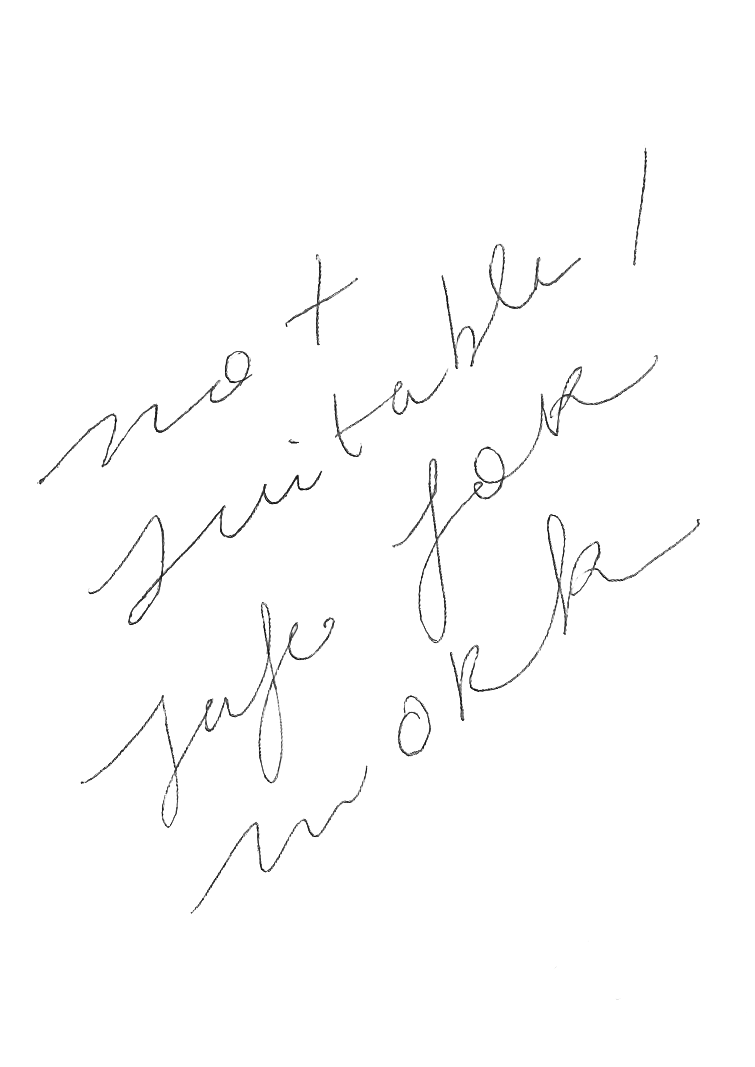 not
suitable!
safe for
work